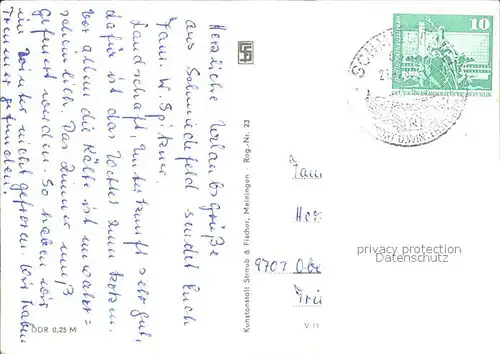 Herzliche Urlaubsgrüße
aus Schmiedefeld sendet Euch
Fam. W.
Landschaft, Unterkunft sehr gut,
dafür ist das Wetter zum kotzen.
Vor allem die Kälte ist unwahr=
scheinlich. Das Zimmer muß
gefeuert werden. So haben wir
im Winter nicht gefroren. Wir haben
DDR 0,25 M
Kunstanstalt Straub & Fischer, Meiningen Reg.-Nr. 23
V 11
10
DEUTSCHE DEMOKRATISCHE REPUBLIK
SCHMI
Fam
9707
privacy protection
Datenschutz